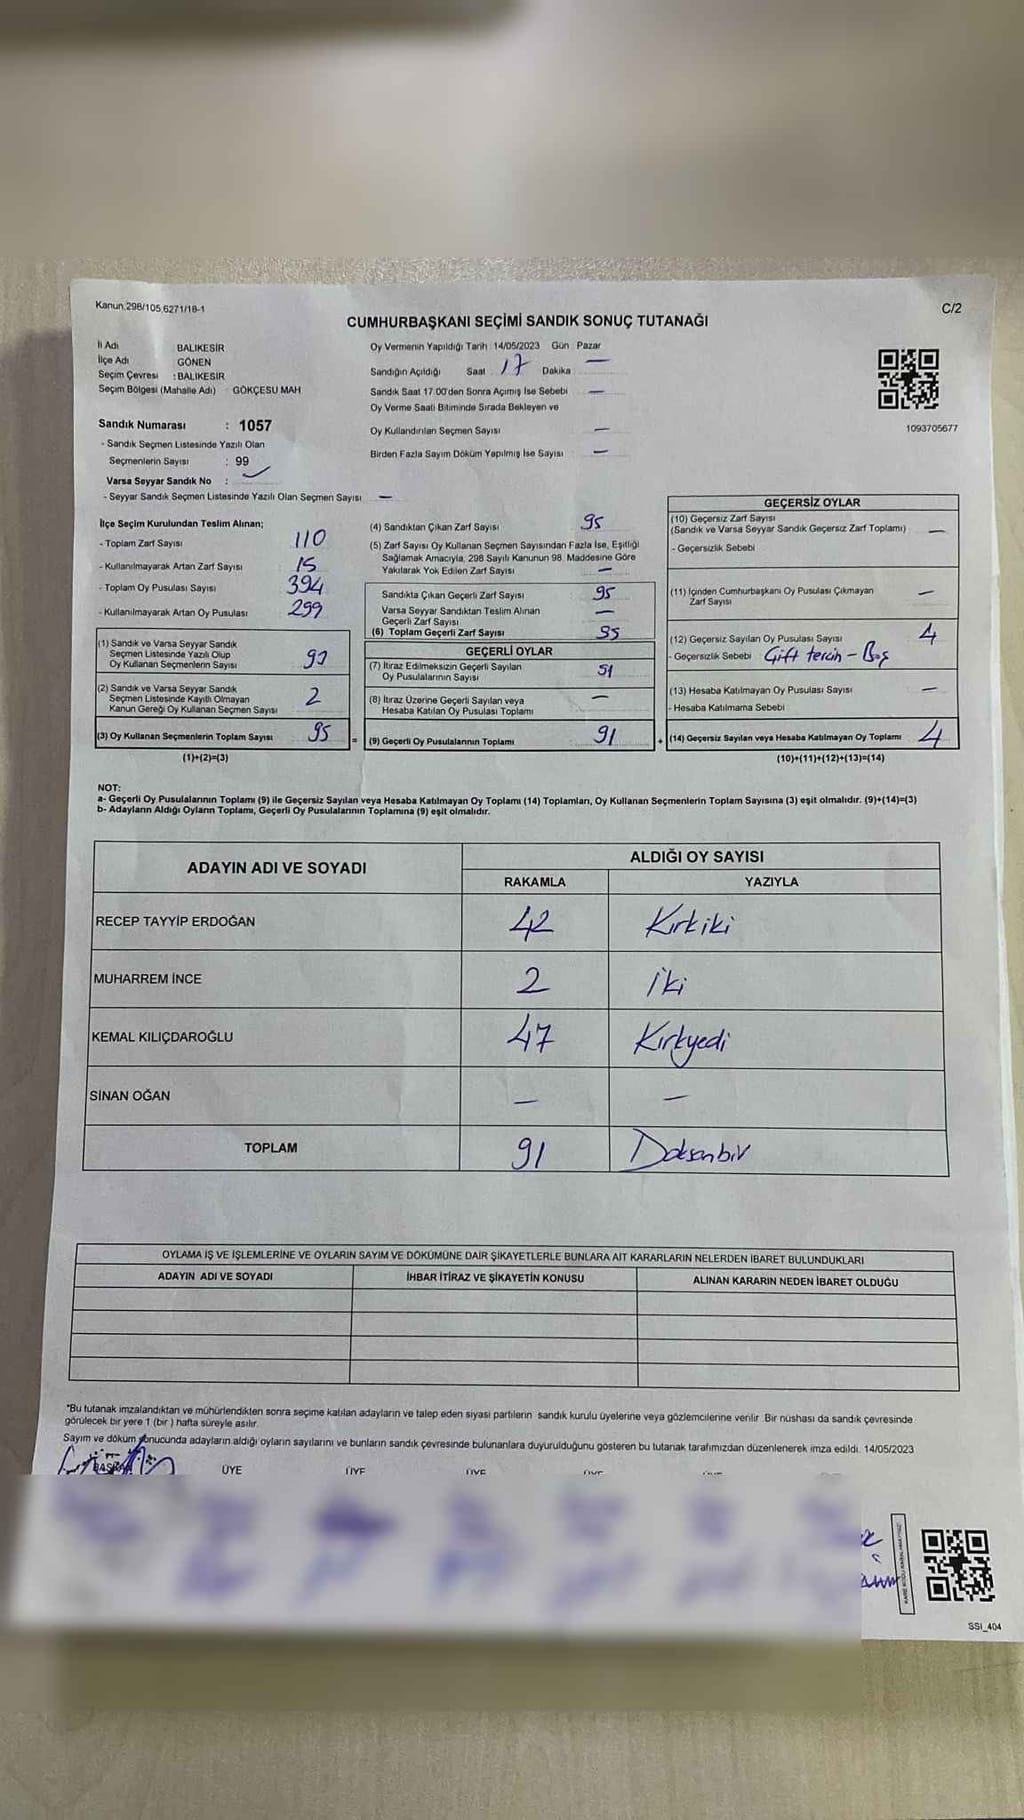 Kanun:298/105,6271/18-1
C/2
CUMHURBAŞKANI SEÇİMİ SANDIK SONUÇ TUTANAĞI
İl Adı BALIKESİR
İlçe Adı GÖNEN
Seçim Çevresi : BALIKESİR
Seçim Bölgesi (Mahalle Adı) GÖKÇESU MAH
Sandık Numarası : 1057
- Sandık Seçmen Listesinde Yazılı Olan
Seçmenlerin Sayısı : 99
Varsa Seyyar Sandık No :
- Seyyar Sandık Seçmen Listesinde Yazılı Olan Seçmen Sayısı —
Oy Vermenin Yapıldığı Tarih 14/05/2023 Gün Pazar
Sandığın Açıldığı Saat 17 Dakika —
Sandık Saat 17:00'den Sonra Açımış İse Sebebi —
Oy Verme Saati Bitiminde Sırada Bekleyen ve
Oy Kullandırılan Seçmen Sayısı —
Birden Fazla Sayım Döküm Yapılmış İse Sayısı —
1093705677
İlçe Seçim Kurulundan Teslim Alınan;
- Toplam Zarf Sayısı 110
- Kullanılmayarak Artan Zarf Sayısı 15
- Toplam Oy Pusulası Sayısı 394
- Kullanılmayarak Artan Oy Pusulası 299
(1) Sandık ve Varsa Seyyar Sandık
Seçmen Listesinde Yazılı Olup
Oy Kullanan Seçmenlerin Sayısı
(2) Sandık ve Varsa Seyyar Sandık
Seçmen Listesinde Kayıtlı Olmayan
Kanun Gereği Oy Kullanan Seçmen Sayısı 2
(3) Oy Kullanan Seçmenlerin Toplam Sayısı 95 =
(1)+(2)=(3)
(4) Sandıktan Çıkan Zarf Sayısı 95
(5) Zarf Sayısı Oy Kullanan Seçmen Sayısından Fazla İse, Eşitliği
Sağlamak Amacıyla, 298 Sayılı Kanunun 98. Maddesine Göre
Yakılarak Yok Edilen Zarf Sayısı —
Sandıkta Çıkan Geçerli Zarf Sayısı 95
Varsa Seyyar Sandıktan Teslim Alınan
Geçerli Zarf Sayısı —
(6) Toplam Geçerli Zarf Sayısı 95
GEÇERLİ OYLAR
(7) İtiraz Edilmeksizin Geçerli Sayılan
Oy Pusulalarının Sayısı 91
(8) İtiraz Üzerine Geçerli Sayılan veya
Hesaba Katılan Oy Pusulası Toplamı —
(9) Geçerli Oy Pusulalarının Toplamı 91 +
GEÇERSİZ OYLAR
(10) Geçersiz Zarf Sayısı
(Sandık ve Varsa Seyyar Sandık Geçersiz Zarf Toplamı) —
- Geçersizlik Sebebi
(11) İçinden Cumhurbaşkanı Oy Pusulası Çıkmayan
Zarf Sayısı —
(12) Geçersiz Sayılan Oy Pusulası Sayısı 4
- Geçersizlik Sebebi Çift tercih - Boş
(13) Hesaba Katılmayan Oy Pusulası Sayısı —
- Hesaba Katılmama Sebebi
(14) Geçersiz Sayılan veya Hesaba Katılmayan Oy Toplamı 4
(10)+(11)+(12)+(13)=(14)
NOT:
a- Geçerli Oy Pusulalarının Toplamı (9) ile Geçersiz Sayılan veya Hesaba Katılmayan Oy Toplamı (14) Toplamları, Oy Kullanan Seçmenlerin Toplam Sayısına (3) eşit olmalıdır. (9)+(14)=(3)
b- Adayların Aldığı Oyların Toplamı, Geçerli Oy Pusulalarının Toplamına (9) eşit olmalıdır.
ADAYIN ADI VE SOYADI ALDIĞI OY SAYISI
RAKAMLA YAZIYLA
RECEP TAYYİP ERDOĞAN 42 Kırkiki
MUHARREM İNCE 2 İki
KEMAL KILIÇDAROĞLU 47 Kırkyedi
SİNAN OĞAN — —
TOPLAM 91 Doksanbir
OYLAMA İŞ VE İŞLEMLERİNE VE OYLARIN SAYIM VE DÖKÜMÜNE DAİR ŞİKAYETLERLE BUNLARA AİT KARARLARIN NELERDEN İBARET BULUNDUKLARI
ADAYIN ADI VE SOYADI İHBAR İTİRAZ VE ŞİKAYETİN KONUSU ALINAN KARARIN NEDEN İBARET OLDUĞU
"Bu tutanak imzalandıktan ve mühürlendikten sonra seçime katılan adayların ve talep eden siyasi partilerin sandık kurulu üyelerine veya gözlemcilerine verilir. Bir nüshası da sandık çevresinde
görülecek bir yere 1 (bir) hafta süreyle asılır.
Sayım ve döküm sonucunda adayların aldığı oyların sayılarını ve bunların sandık çevresinde bulunanlara duyurulduğunu gösteren bu tutanak tarafımızdan düzenlenerek imza edildi. 14/05/2023
BAŞKAN ÜYE ÜYE ÜYE
SSI_404